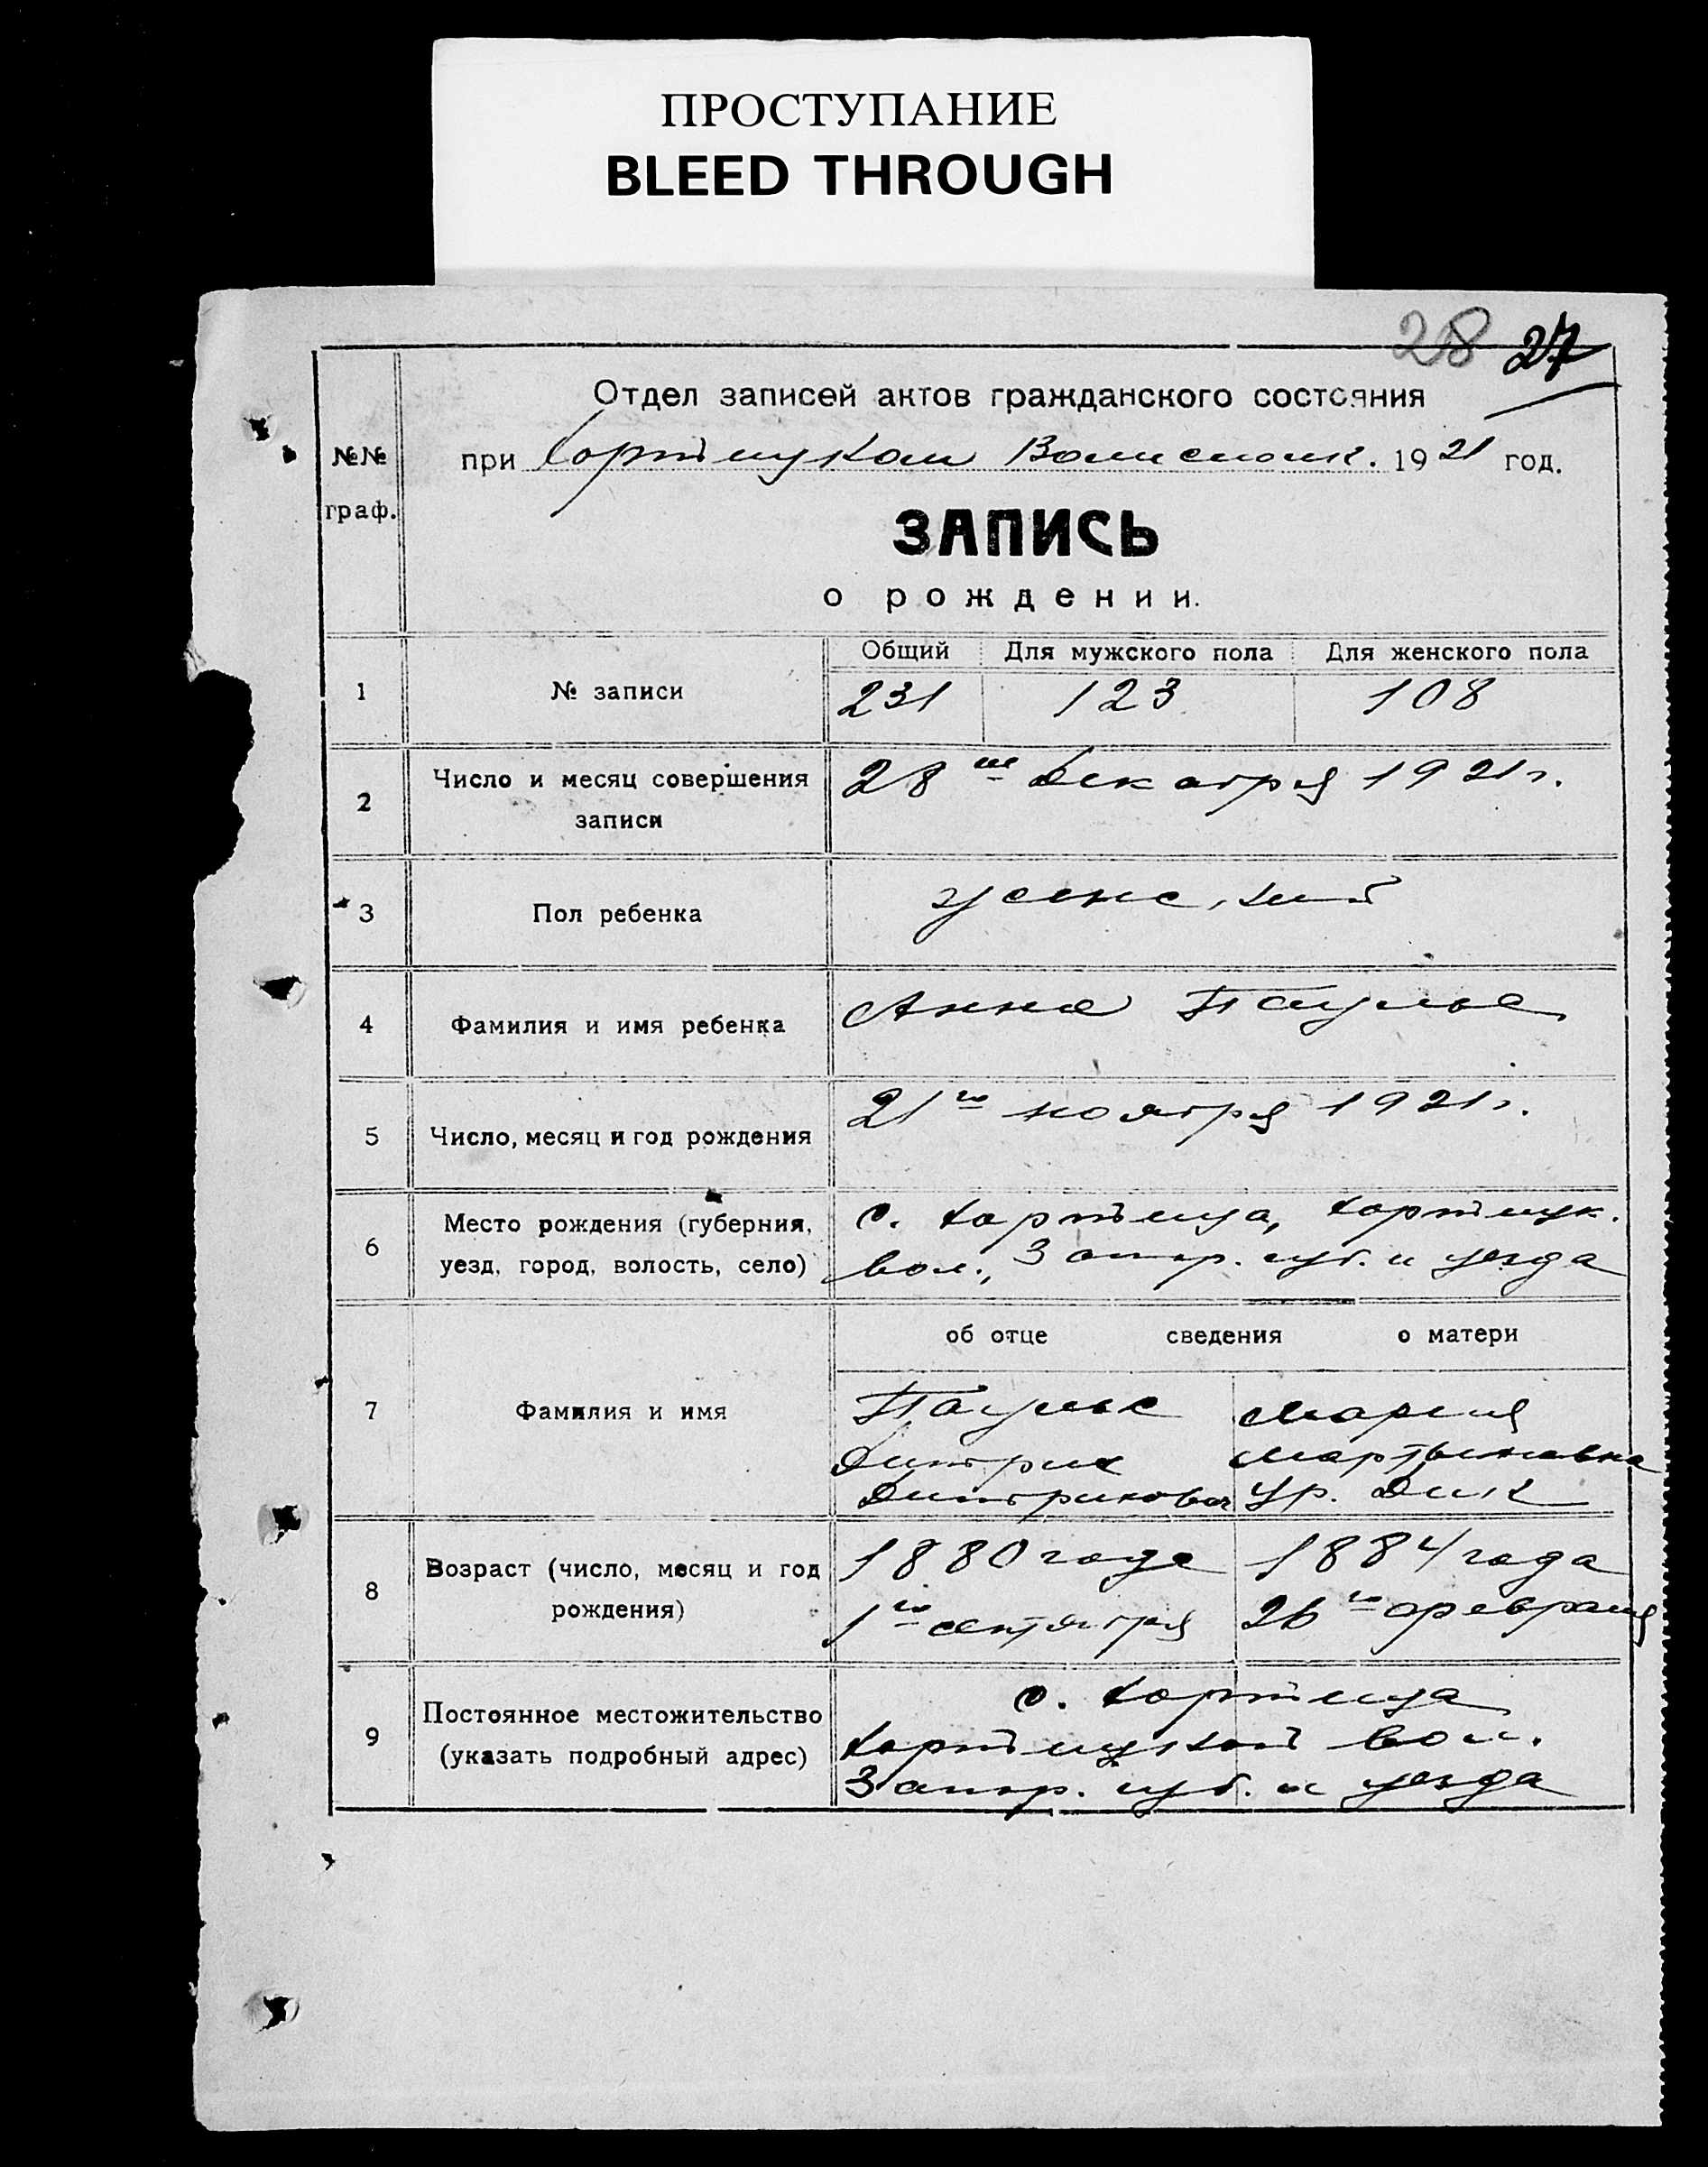 ПРОСТУПАНИЕ
BLEED THROUGH
28 27
Отдел записей актов гражданского состояния
№№ граф.
при Хортицком Волисполк. 1921 год.
ЗАПИСЬ
о рождении.
Общий Для мужского пола Для женского пола
1 № записи 231 123 108
2 Число и месяц совершения записи 28го декабря 1921 г.
3 Пол ребенка женский
4 Фамилия и имя ребенка Анна Паульс
5 Число, месяц и год рождения 21го ноября 1921 г.
6 Место рождения (губерния, уезд, город, волость, село) с. Хортица, Хортицк.
вол., Запор. губ. и уезда
об отце сведения о матери
7 Фамилия и имя Паульс Мария
Дитрих Мартыновна
Дитрихович ур. Дик
8 Возраст (число, месяц и год рождения) 1880 года 1884 года
1го сентября 26го февраля
9 Постоянное местожительство (указать подробный адрес) с. Хортица
Хортицкой вол.
Запор. губ. и уезда